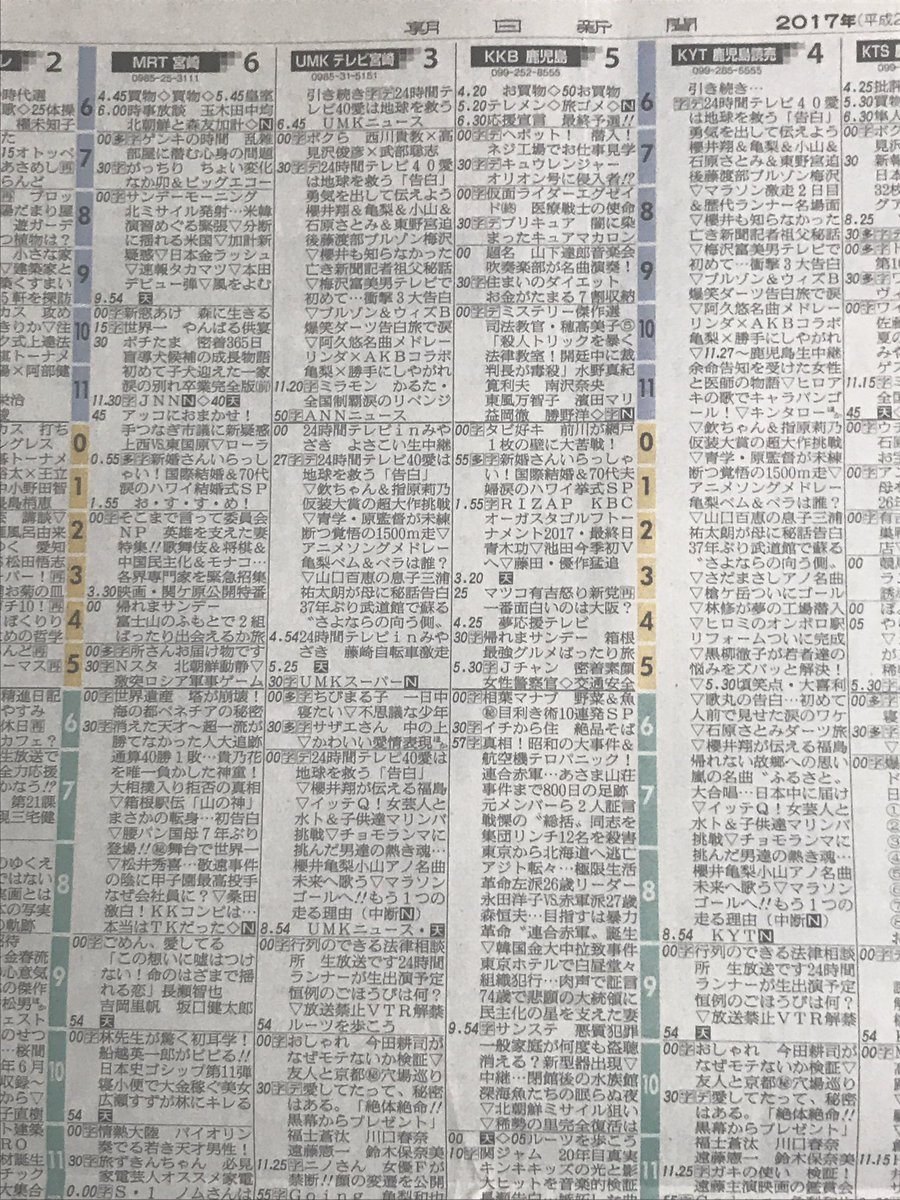 朝日新聞
2017年(平成2
2
MRT 宮崎 6
0985-25-3111
4.45買物◇買物◇5.45皇室
6.00時事放談 玉木田中均
北朝鮮と森友加計◇N
00多字ゲンキの時間 乱雑
部屋に潜む心身の問題
30字がっちり ちょい変化
なか卯&ビッグエコー
00字サンデーモーニング
北ミサイル発射…米韓
演習めぐる緊張▽分断
に揺れる米国▽加計新
疑惑▽日本金ラッシュ
▽速報タカマツ▽本田
デビュー弾▽風をよむ
9.54 天
00字新窓あけ 森に生きる
15字世界一 やんばる供宴
30 ポチたま 密着365日
盲導犬候補の成長物語
初めて子犬迎えた一家
涙の別れ卒業完全版(前)
11.30字JNNN◇40天
45 アッコにおまかせ!
手つなぎ市議に新疑惑
上西VS東国原▽ローラ
0.55多字新婚さんいらっし
ゃい!国際結婚&70代
涙のハワイ結婚式SP
1.55 お・す・す・め!
00字そこまで言って委員会
NP 英雄を支えた妻
特集!!歌舞伎&将棋&
中国民主化&モナコ…
各界専門家を緊急招集
3.30映画・関ケ原公開特番
00 帰れまサンデー
富士山のふもとで2組
ばったり出会えるか旅
00多字所さんお届け物です
30字Nスタ 北朝鮮動静▽
激突ロシア軍事ゲーム
00字世界遺産 塔が崩壊!
海の都ベネチアの秘密
30字消えた天才~超一流が
勝てなかった人大追跡
通算40勝1敗…貴乃花
を唯一負かした神童!
大相撲入り拒否の真相
▽箱根駅伝「山の神」
まさかの転身…初告白
▽腰パン国母7年ぶり
登場!!㊙舞台で世界一
▽松井秀喜…敬遠事件
の陰に甲子園最高投手
なぜ会社員に?▽桑田
激白!KKコンビは…
本当はTKだった◇N
00字ごめん、愛してる
「この想いに嘘はつけ
ない!命のはざまで揺
れる恋」長瀬智也
吉岡里帆 坂口健太郎
54 天
00字林先生が驚く初耳学!
船越英一郎がビビる!!
日本史ゴシップ第11弾
寝小便で大金稼ぐ美女
広瀬すずが林にキレる
54 天
00字情熱大陸 バイオリン
奏でる若き天才男性!
30字旅ずきんちゃん 必見
家電芸人オススメ家電
0.00字S・1 ノムさんは
UMK テレビ宮崎 3
0985-31-5151
引き続き字デ24時間テ
レビ40愛は地球を救う
6.45 UMKニュース
00字ボクら 西川貴教×高
見沢俊彦×武部聡志
30字デ24時間テレビ40愛
は地球を救う「告白」
勇気を出して伝えよう
櫻井翔&亀梨&小山&
石原さとみ&東野宮迫
後藤渡部ブルゾン梅沢
▽櫻井も知らなかった
亡き新聞記者祖父秘話
▽梅沢富美男テレビで
初めて…衝撃3大告白
▽ブルゾン&ウィズB
爆笑ダーツ告白旅で涙
▽阿久悠名曲メドレー
リンダ×AKBコラボ
亀梨×勝手にしやがれ
11.20字ミラモン かるた・
全国制覇涙のリベンジ
50字ANNニュース
00 24時間テレビinみや
ざき よさこい生中継
27字デ24時間テレビ40愛は
地球を救う「告白」
▽欽ちゃん&指原莉乃
仮装大賞の超大作挑戦
▽青学・原監督が未練
断つ覚悟の1500m走▽
アニメソングメドレー
亀梨ベム&ベラは誰?
▽山口百恵の息子三浦
祐太朗が母に秘話告白
37年ぶり武道館で蘇る
"さよならの向う側"
4.5424時間テレビinみや
ざき 藤崎自転車激走
5.25 天
30字UMKスーパーN
00多字ちびまる子 一日中
寝たい▽不思議な少年
30多字サザエさん 中の上
▽かわいい愛情表現
00字デ24時間テレビ40愛は
地球を救う「告白」
▽櫻井翔が伝える福島
▽イッテQ!女芸人と
水ト&子供達マリンバ
挑戦▽チョモランマに
挑んだ男達の熱き魂…
櫻井亀梨小山アノ名曲
未来へ歌う▽マラソン
ゴールへ!!もう1つの
走る理由(中断N)
8.54 UMKニュース・天
00字行列のできる法律相談
所 生放送です24時間
ランナーが生出演予定
恒例のごほうびは何?
▽放送禁止VTR解禁
54 ルーツを歩こう
00字おしゃれ 今田耕司が
なぜモテないか検証▽
友人と京都㊙穴場巡り
30字デ愛してたって、秘密
はある。「絶体絶命!!
黒幕からプレゼント」
福士蒼汰 川口春奈
遠藤憲一 鈴木保奈美
11.25字ニノさん 女優Fが
禁断!!顔の変遷を公開
55字Going 亀梨和也
KKB 鹿児島 5
099-252-8555
4.20 お買物◇50お買物
5.20テレメン◇旅ゴメ◇N
6.30応援宣言 最終予選!!
00字デヘボット! 潜入!
ネジ工場でお仕事見学
30字デキュウレンジャー
オリオン号に侵入者!?
00字仮面ライダーエグゼイ
ド(終) 医療戦士の使命
30字デプリキュア 闇に染
まったキュアマカロン
00 題名 山下達郎音楽会
吹奏楽部が名曲演奏!
30字住まいのダイエット
お金がたまる7割収納
00字デミステリー傑作選
司法教官・穂高美子⑤
「殺人トリックを暴く
法律教室!開廷中に裁
判長が毒殺」水野真紀
筧利夫 南沢奈央
東風万智子 濱田マリ
益岡徹 勝野洋◇字N
00字タビ好キ 前川が網戸
1枚の壁に大苦戦!
55多字新婚さんいらっしゃ
い!国際結婚&70代夫
婦涙のハワイ挙式SP
1.55字RIZAP KBC
オーガスタゴルフトー
ナメント2017・最終日
青木功▽池田今季初V
へ▽藤田・優作猛追
3.20 天
25 マツコ有吉怒り新党再
一番面白いのは大阪?
4.25 夢応援テレビ
30字帰れまサンデー 箱根
最強グルメばったり旅
5.30字Jチャン 密着素顔
女性警察官◇交通安全
00字相葉マナブ 野菜&魚
㊙目利き術10連発SP
30字イチから住 絶品そば
57字真相!昭和の大事件&
航空機テロパニック!
連合赤軍…あさま山荘
事件まで800日の足跡
元メンバーら2人証言
戦慄の"総括"同志を
集団リンチ12名を殺害
東京から北海道へ逃亡
アジト転々…極限生活
革命左派26歳リーダー
永田洋子VS.赤軍派27歳
森恒夫…目指すは暴力
革命"連合赤軍"誕生
▽韓国金大中拉致事件
東京ホテルで白昼堂々
組織犯行…肉声で証言
74歳で悲願の大統領に
民主化の星を支えた妻
9.54字サンステ 悪質犯罪
一般家庭が何度も盗聴
消える?新型器出現▽
中継…閉館後の水族館
深海魚たちの眠らぬ夜
▽北朝鮮ミサイル狙い
▽稀勢の里完全復活は
00 天◇05ルーツを歩こう
10字関ジャム 20年目真実
キンキキッズの光と影
大ヒットを音楽的検証
KYT 鹿児島読売 4
099-285-5555
引き続き…
字デ24時間テレビ40愛
は地球を救う「告白」
勇気を出して伝えよう
櫻井翔&亀梨&小山&
石原さとみ&東野宮迫
後藤渡部ブルゾン梅沢
▽マラソン激走2日目
&歴代ランナー名場面
▽櫻井も知らなかった
亡き新聞記者祖父秘話
▽梅沢富美男テレビで
初めて…衝撃3大告白
▽ブルゾン&ウィズB
爆笑ダーツ告白旅で涙
▽阿久悠名曲メドレー
リンダ×AKBコラボ
亀梨×勝手にしやがれ
▽11.27~鹿児島生中継
余命告知を受けた女性
と医師の物語▽ヒロア
キの歌でキャラバンゴ
ール!▽キンタロー。
▽欽ちゃん&指原莉乃
仮装大賞の超大作挑戦
▽青学・原監督が未練
断つ覚悟の1500m走▽
アニメソングメドレー
亀梨ベム&ベラは誰?
▽山口百恵の息子三浦
祐太朗が母に秘話告白
37年ぶり武道館で蘇る
"さよならの向う側"
▽さだまさしアノ名曲
▽槍ケ岳ついにゴール
▽林修が夢の工場潜入
▽ヒロミのオンボロ駅
リフォームついに完成
▽黒柳徹子が若者達の
悩みをズバッと解決!
▽5.30頃笑点・大喜利
▽歌丸の告白…初めて
人前で見せた涙のワケ
▽石原さとみダーツ旅
▽櫻井翔が伝える福島
帰れない故郷への思い
嵐の名曲"ふるさと"
大合唱…日本中に届け
▽イッテQ!女芸人と
水ト&子供達マリンバ
挑戦▽チョモランマに
挑んだ男達の熱き魂…
櫻井亀梨小山アノ名曲
未来へ歌う▽マラソン
ゴールへ!!もう1つの
走る理由(中断N)
8.54 KYTN
00字行列のできる法律相談
所 生放送です24時間
ランナーが生出演予定
恒例のごほうびは何?
▽放送禁止VTR解禁
54 天
00字おしゃれ 今田耕司が
なぜモテないか検証▽
友人と京都㊙穴場巡り
30字デ愛してたって、秘密
はある。「絶体絶命!!
黒幕からプレゼント」
福士蒼汰 川口春奈
遠藤憲一 鈴木保奈美
11.25字ガキの使い 検証!
遠藤主演映画の鑑賞会
KTS 鹿